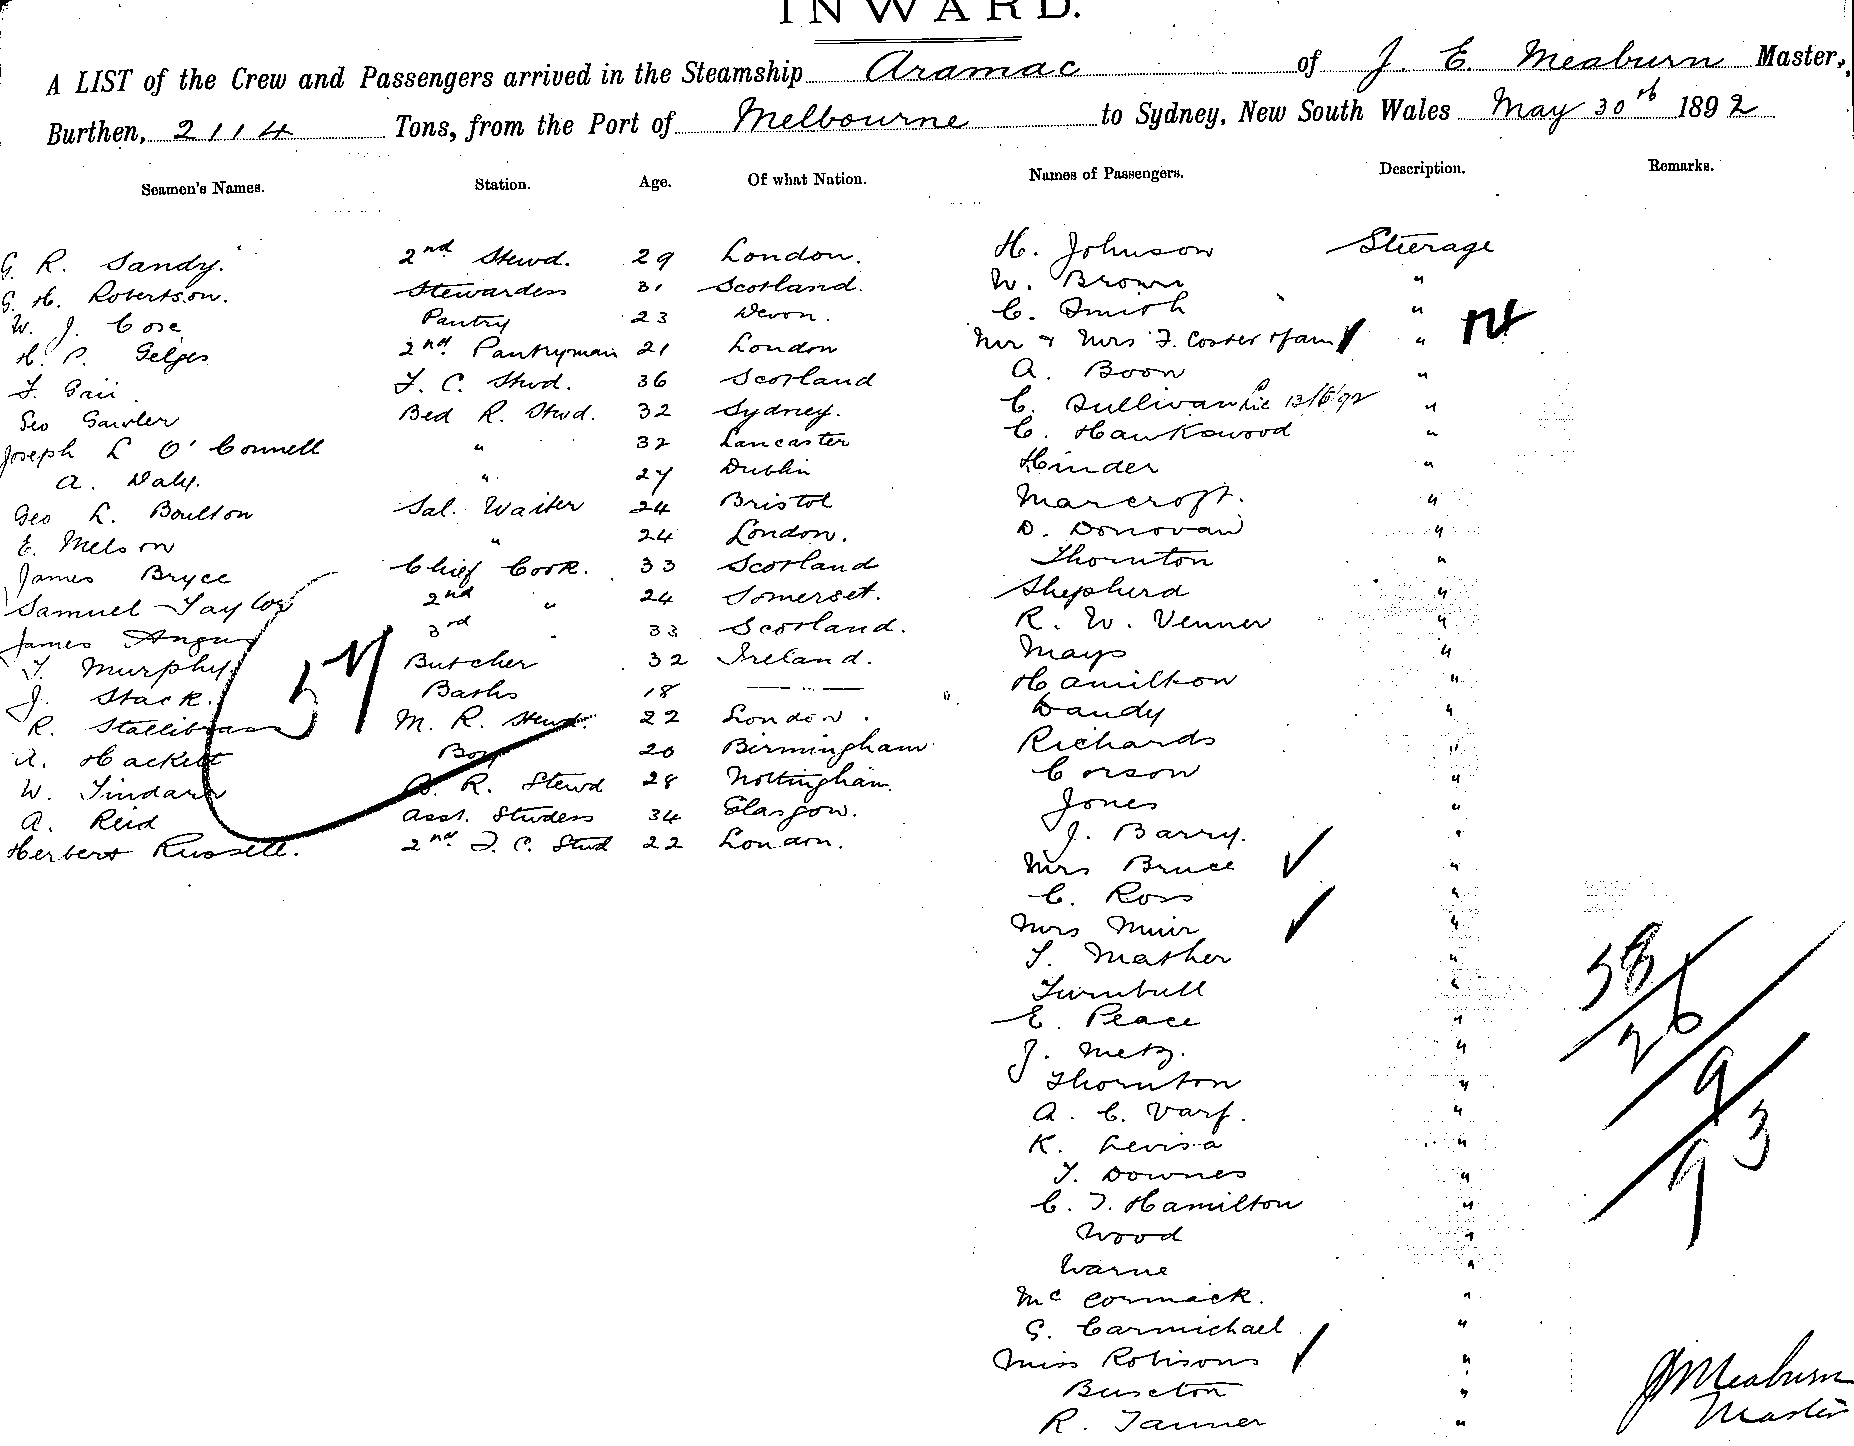 INWARD.
A LIST of the Crew and Passengers arrived in the Steamship Aramac of J. E. Meaburn Master,
Burthen, 2114 Tons, from the Port of Melbourne to Sydney, New South Wales May 30th 1892
Seamen's Names. Station. Age. Of what Nation. Names of Passengers. Description. Remarks.
G. R. Sandy. 2nd Stewd. 29 London. H. Johnson Steerage
G. H. Robertson. Stewardess 31 Scotland. W. Brown "
W. J. Cose Pantry 23 Devon. C. Smith "
H. P. Gelges 2nd Pantryman 21 London Mr & Mrs F. Coster & fam "
F. C. Stwd. 36 Scotland A. Boon "
Geo Gawler Bed R. Stwd. 32 Sydney. C. Sullivan "
Joseph L O'Connell " 32 Lancaster C. Hawkswood "
A. Daly. " 27 Dublin Hinder "
Geo L. Boulton Sal. Waiter 24 Bristol Marcroft. "
E. Melson " 24 London. D. Donovan "
James Bryce Chief Cook. 33 Scotland Thornton "
Samuel Taylor 2nd " 24 Somerset. Shepherd "
James Angus 3rd " 33 Scotland. R. W. Venner "
T. Murphy Butcher 32 Ireland. Mays "
J. Stack. Baths 18 — " — Hamilton "
R. Stallibrass M. R. Stewd. 22 London. Dandy "
A. Hackett Boy 20 Birmingham Richards "
W. Tindare B. R. Stewd 28 Nottingham. Corson "
A. Reid Asst. Studess 34 Glasgow. Jones "
Herbert Russell. 2nd F. C. Stud 22 London. J. Barry. "
Mrs Bruce "
C. Ross "
Mrs Muir "
T. Mather "
Turnbull "
E. Peace "
J. Metz. "
Thornton "
A. C. Varf. "
K. Levisa "
T. Downes "
C. T. Hamilton "
Wood "
Warne "
McCormack. "
G. Carmichael "
Miss Robisons "
Buscton "
R. Tanner "
57
38
26
9
93
J Meaburn
Master